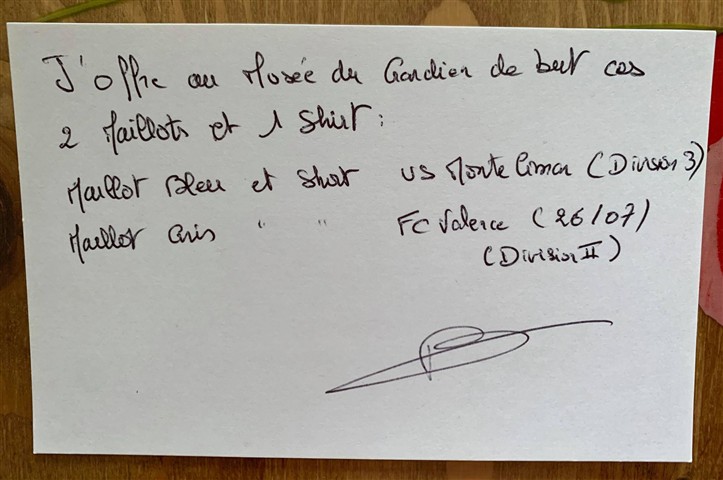 J'offre au Musée du Gardien de but ces
2 Maillots et 1 Short :
Maillot Bleu et Short US Montelimar (Division 3)
Maillot Gris " " FC Valence (26/07)
(Division II)